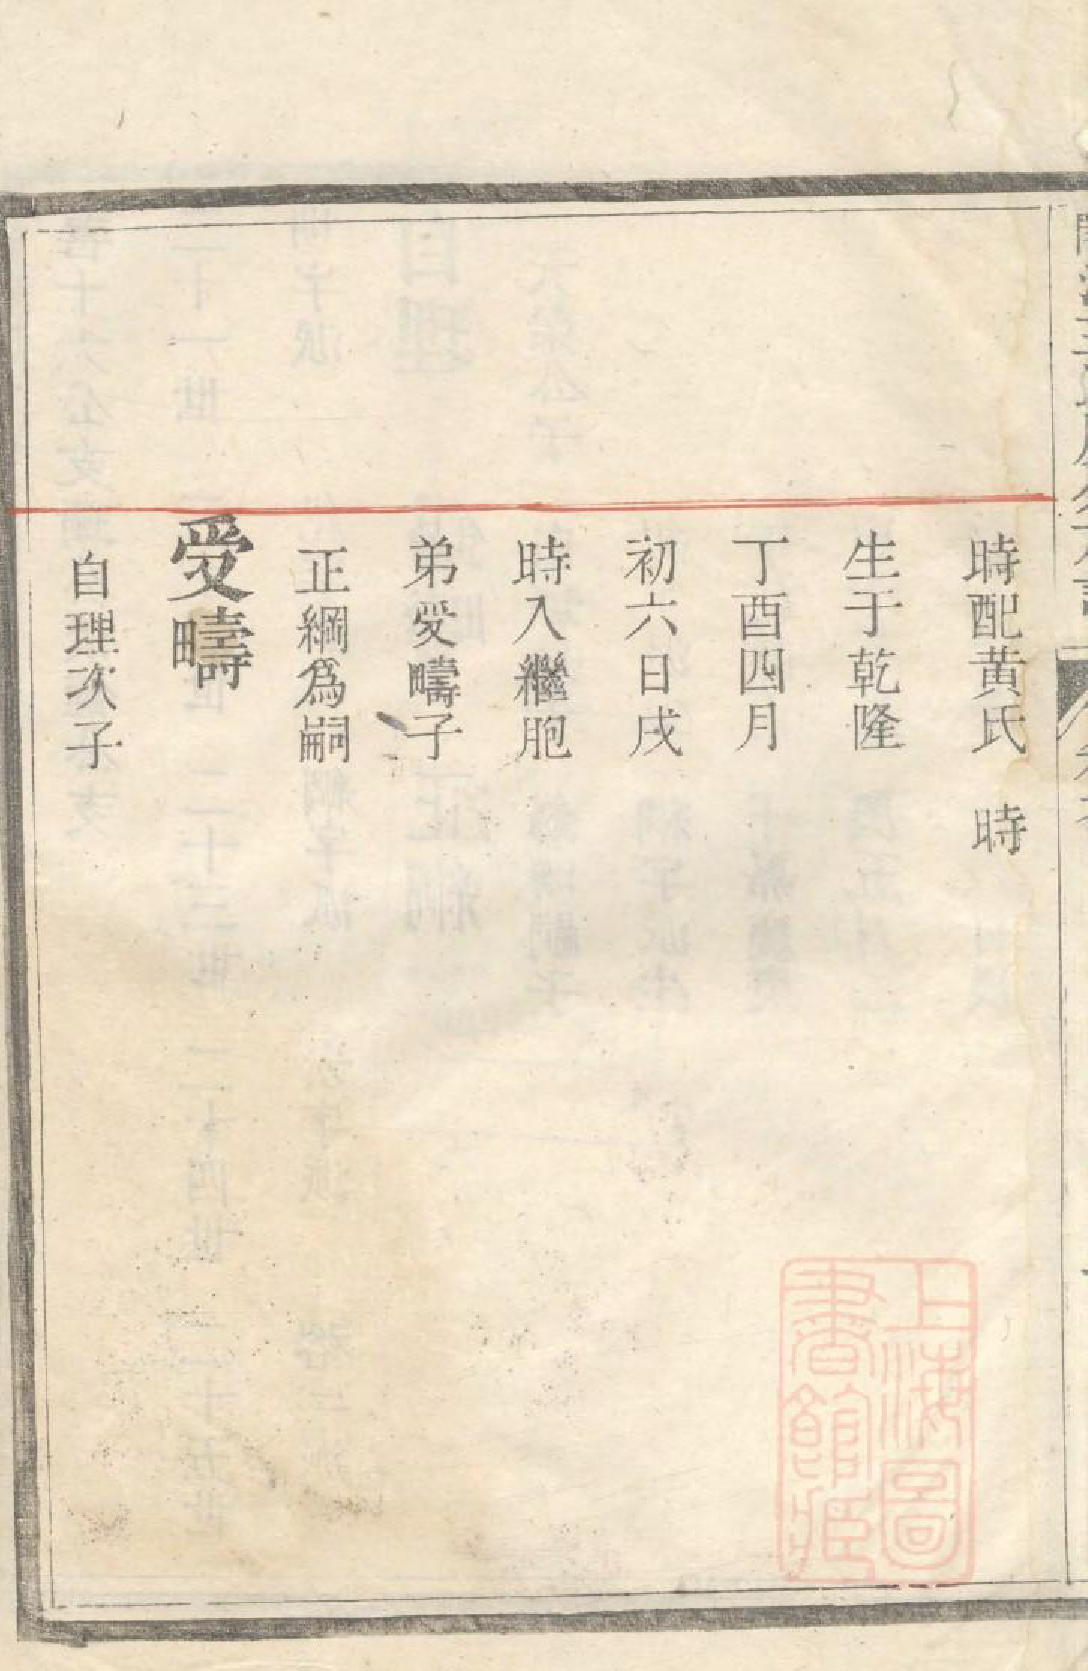 時配黄氏 時
生于乾隆
丁酉四月
初六日戌
時入繼胞
弟受疇子
正綱爲嗣
受疇
自理次子
上海圖
書館藏